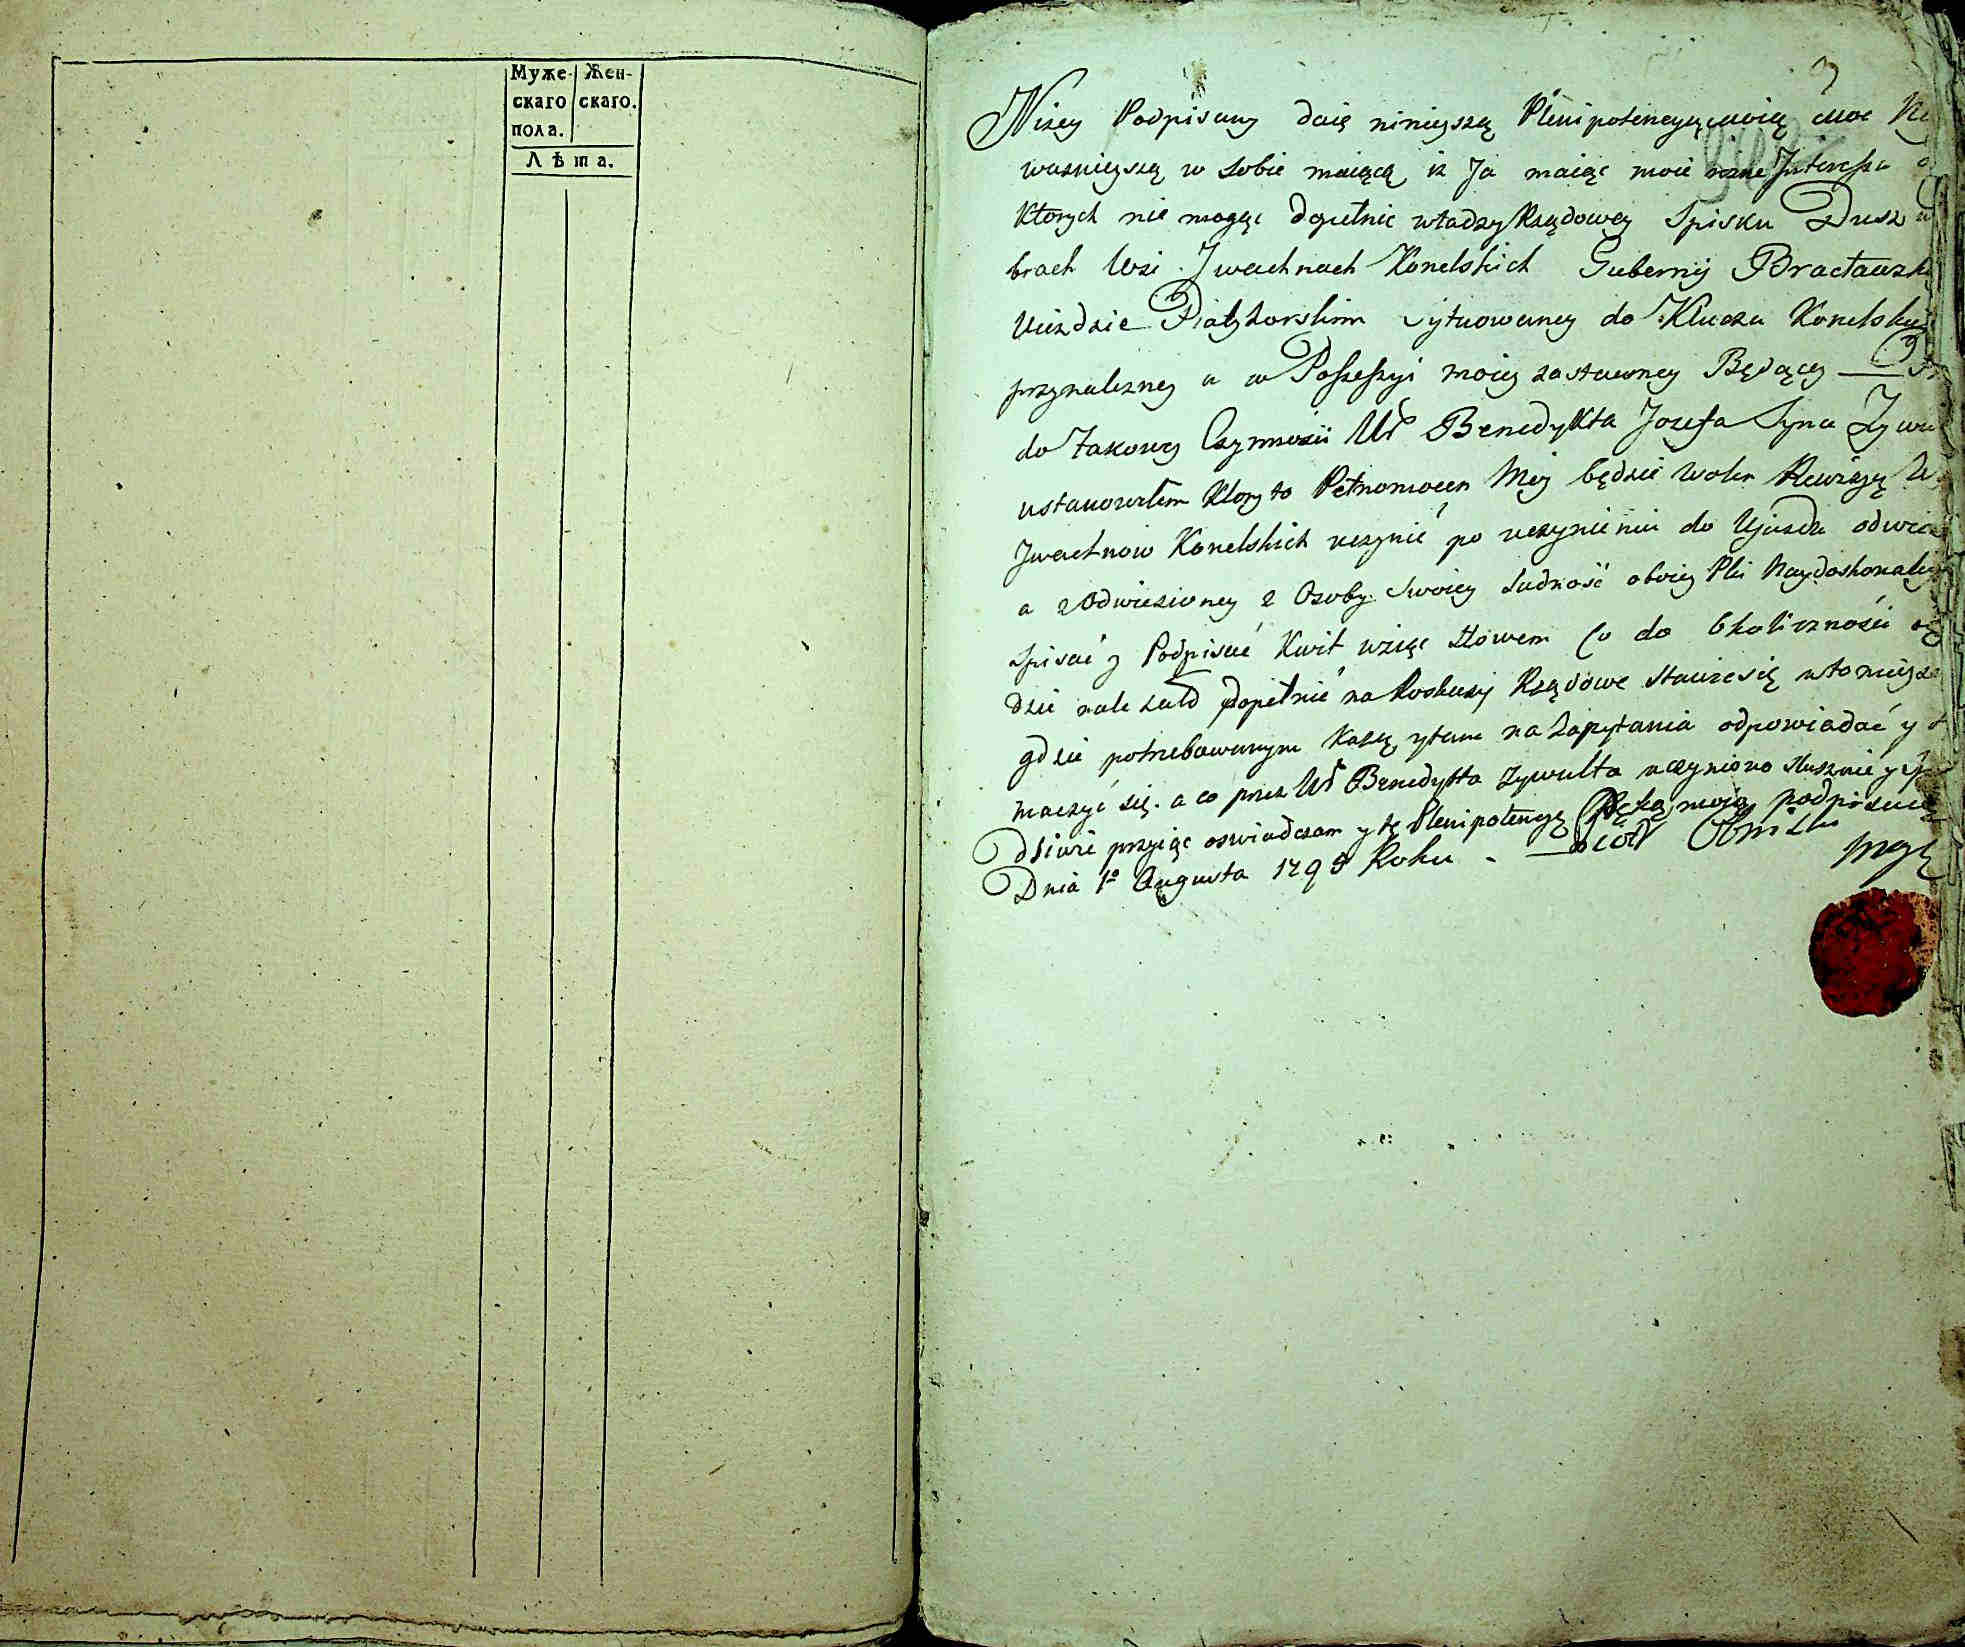 Муже-
скаго
пола.
Жен-
скаго.
Лѣта.
3
Niżey Podpisany daię ninieyszą Plenipotencyą moią moc
ważnieyszą w sobie maiącą iż Ja maiąc moie rożne Interessa
ktorych nie mogąc dopełnic władzy Rządowey Spisku Dusz w
brach Wsi Iwachnach Konelskich Gubernij Bracławsk
Uieździe Piatyhorskim sytuowaney do Klucza Konelsk
przynależney a w Possessyi moiey zastawney Będącey
do takowey Czynności Ur Benedykta Jozefa Syna Zywu
ustanowiłem ktory to Pełnomocen Moy będzie wolen Rewizyą W
Iwachnow Konelskich uczynić po uczynieniu do Ujazdu odwie
a z Odwiezioney z Osoby swoiey Ludność oboiey Płci Naydoskonaley
spisać y Podpisać Kwit wziąc Słowem Co do Okoliczności
dzie należało dopełnić na Roskazy Rządowe stawić się w to mieysce
gdzie potrzebowanym każą y tam na Zapytania odpowiadać y
maczyć się. a co przez Ur Benedykta Zywulta uczyniono słusznie y
dziwie przyiąc oswiadczam y tę Plenipotencyę Ręką moią podpisuię
Dnia 1o Augusta 1795 Roku -
mpr